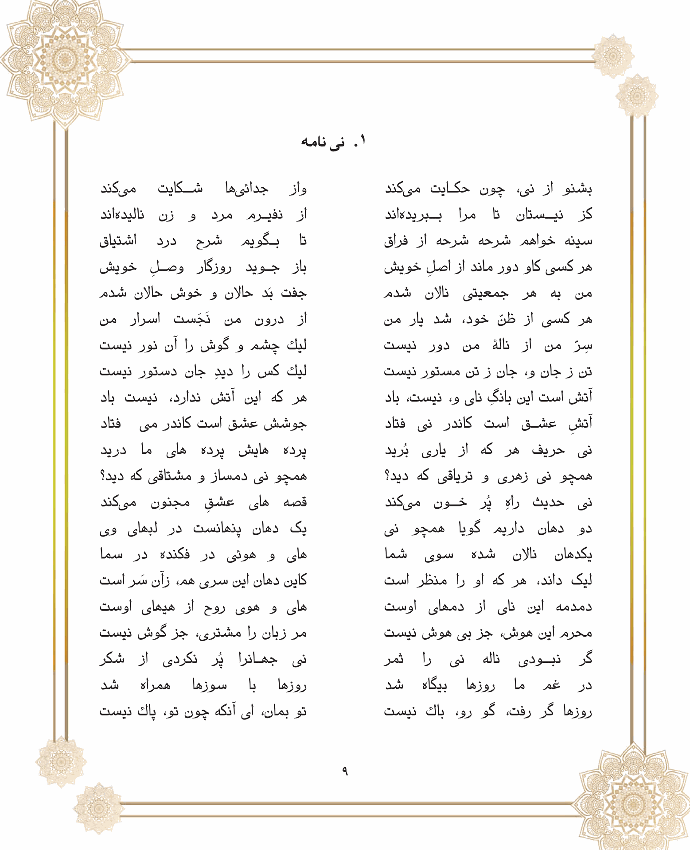 ۱. نی نامه
بشنو از نی، چون حکـایت می‌کند واز جدائی‌ها شــکایت می‌کند
کز نیــستان تا مرا بــبریده‌اند از نفیـرم مرد و زن نالیده‌اند
سینه خواهم شرحه شرحه از فراق تا بـگویم شرح درد اشتیاق
هر کسی کاو دور ماند از اصلِ خویش باز جـوید روزگار وصـلِ خویش
من به هر جمعیتی نالان شدم جفت بَد حالان و خوش حالان شدم
هر کسی از ظنّ خود، شد یار من از درون من نَجَست اسرار من
سِرّ من از نالهٔ من دور نیست لیك چشم و گوش را آن نور نیست
تن ز جان و، جان ز تن مستور نیست لیك کس را دیدِ جان دستور نیست
آتش است این بانگِ نای و، نیست، باد هر که این آتش ندارد، نیست باد
آتشِ عشــق است کاندر نی فتاد جوشش عشق است کاندر می فتاد
نی حریف هر که از یاری بُرید پرده هایش پرده های ما درید
همچو نی زهری و تریاقی که دید؟ همچو نی دمساز و مشتاقی که دید؟
نی حدیث راهِ پُر خــون می‌کند قصه های عشقِ مجنون می‌کند
دو دهان داریم گویا همچو نی یک دهان پنهانست در لبهای وی
یکدهان نالان شده سوی شما های و هوئی در فکنده در سما
لیک داند، هر که او را منظر است کاین دهان این سری هم، زآن سَر است
دمدمه این نای از دمهای اوست های و هوی روح از هیهای اوست
محرم این هوش، جز بی هوش نیست مر زبان را مشتری، جز گوش نیست
گر نبـودی ناله نی را ثمر نی جهـانرا پُر نکردی از شکر
در غم ما روزها بیگاه شد روزها با سوزها همراه شد
روزها گر رفت، گو رو، باك نیست تو بمان، ای آنکه چون تو، پاك نیست
۹